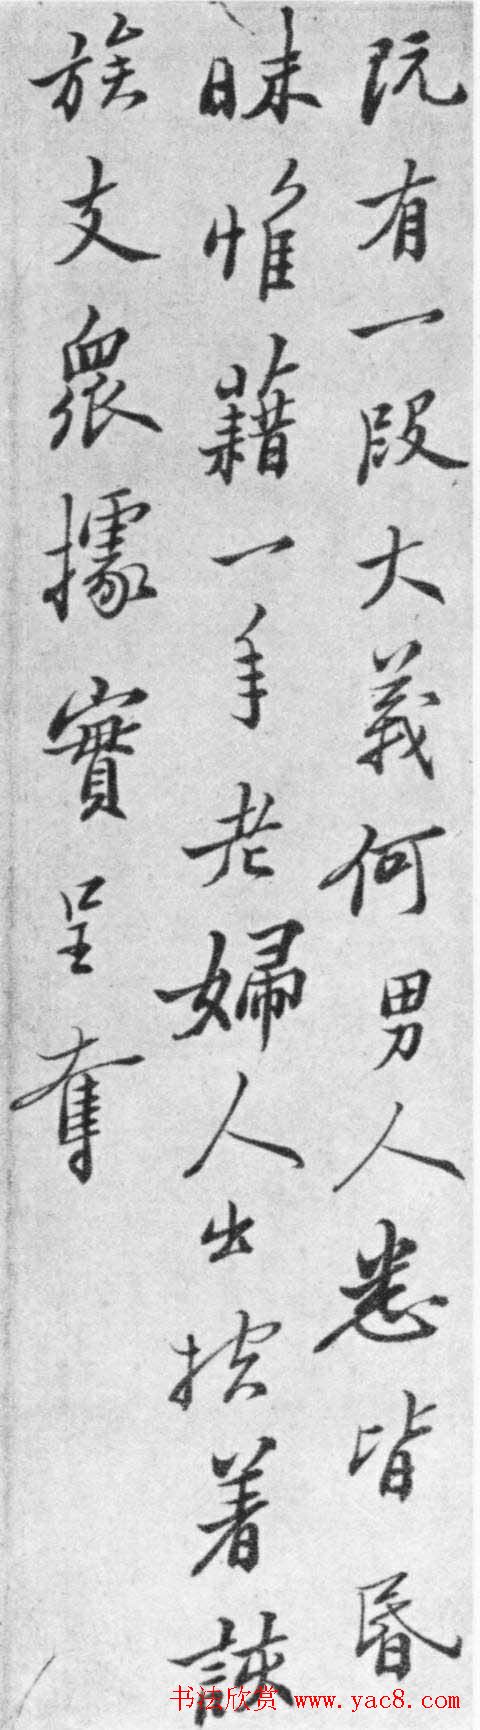 既有一段大義何男人悉皆昏
昧惟藉一手老婦人出控着誺
族支眾據實呈奪
书法欣赏 www.yac8.com